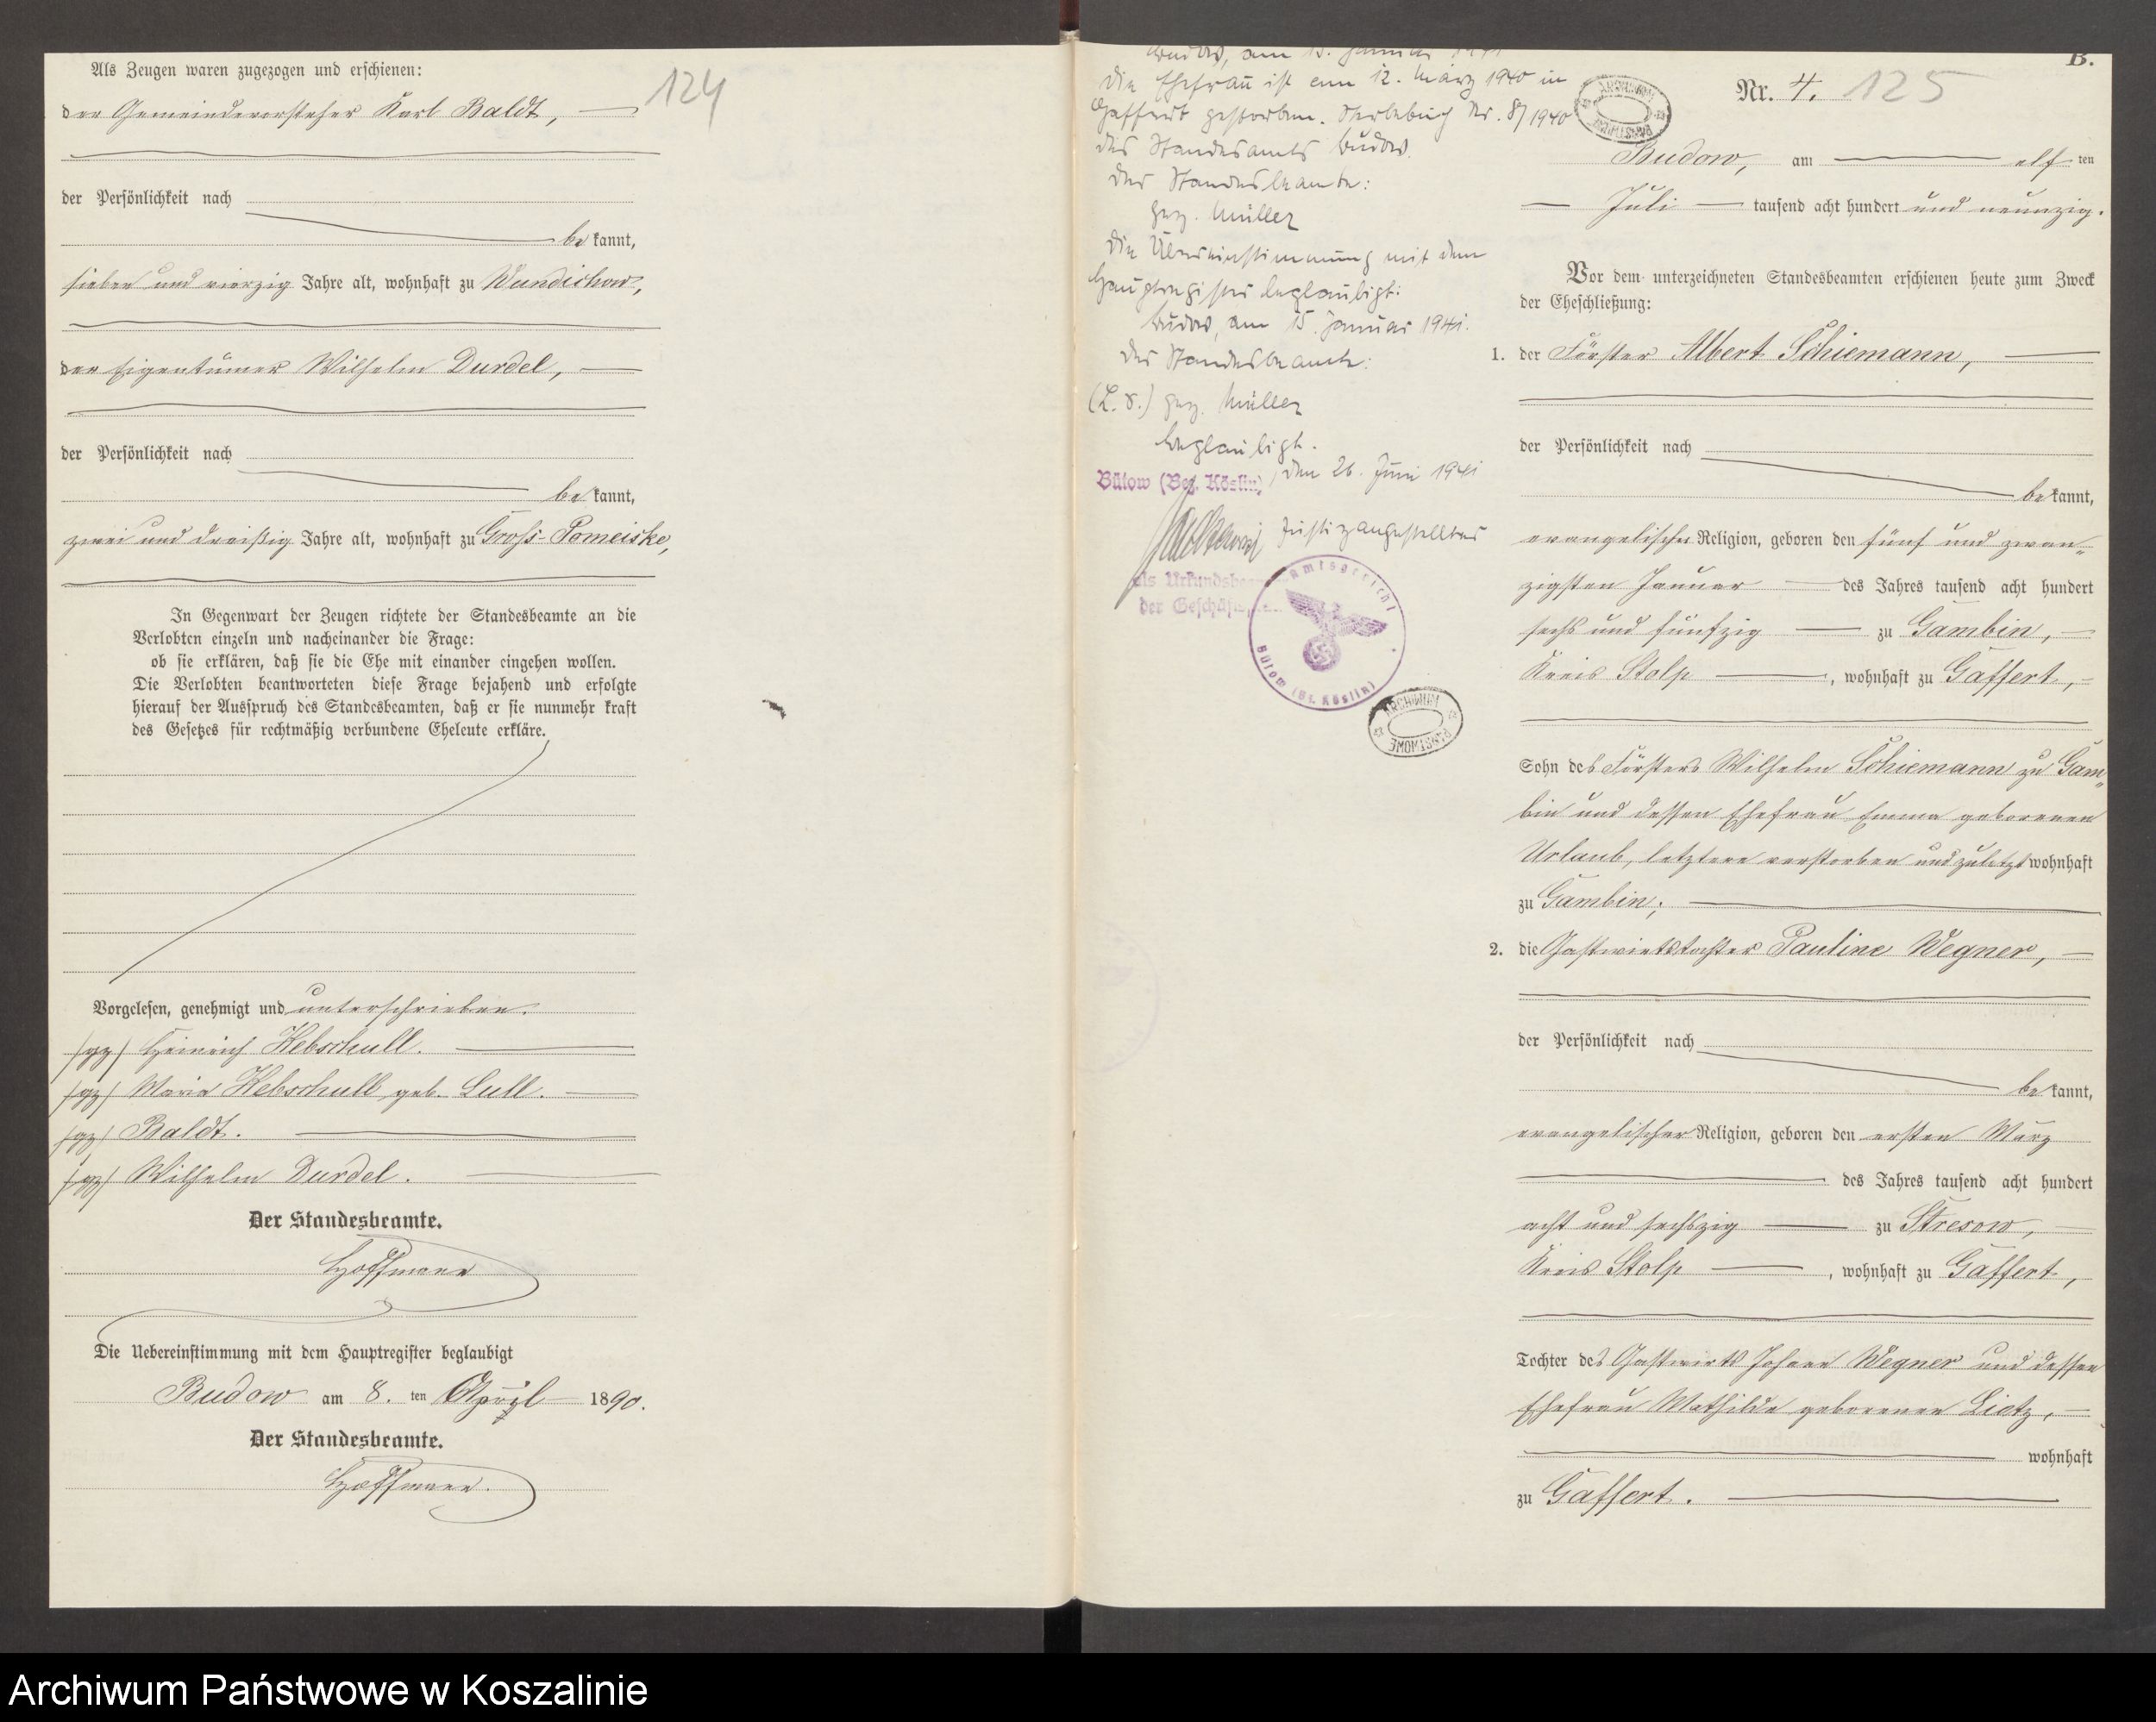 Als Zeugen waren zugezogen und erschienen:
124
der Gemeindevorsteher Karl Baldt,
der Persönlichkeit nach
be kannt,
sieben und vierzig Jahre alt, wohnhaft zu Wundichow,
der Eigentümer Wilhelm Durdel,
der Persönlichkeit nach
be kannt,
zwei und dreißig Jahre alt, wohnhaft zu Groß-Pomeiske,
In Gegenwart der Zeugen richtete der Standesbeamte an die
Verlobten einzeln und nacheinander die Frage:
ob sie erklären, daß sie die Ehe mit einander eingehen wollen.
Die Verlobten beantworteten diese Frage bejahend und erfolgte
hierauf der Ausspruch des Standesbeamten, daß er sie nunmehr kraft
des Gesetzes für rechtmäßig verbundene Eheleute erkläre.
Vorgelesen, genehmigt und unterschrieben.
(gz) Heinrich Kebschull.
(gz) Marie Kebschull geb. Lull.
(gz) Baldt.
(gz) Wilhelm Durdel.
Der Standesbeamte.
Hoffmann
Die Uebereinstimmung mit dem Hauptregister beglaubigt
Budow am 8. ten April 1890.
Der Standesbeamte.
Hoffmann.
Budow, am 15. Januar 1941
Die Ehefrau ist am 12. März 1940 in
Gaffert gestorben. Sterbebuch Nr. 8/1940
des Standesamts Budow.
Der Standesbeamte:
gez. Müller
Die Übereinstimmung mit dem
Hauptregister beglaubigt:
Budow, am 15. Januar 1941.
Der Standesbeamte:
(L.S.) gez. Müller
Beglaubigt.
Bütow (Bez. Köslin), den 26. Juni 1941
Justizangestellter
als
der
Amtsgericht
Bütow (Bz. Köslin)
ARCHIWUM
PAŃSTWOWE
B.
ARCHIWUM
PAŃSTWOWE
Nr. 4. 125
Budow, am elf ten
Juli tausend acht hundert und neunzig.
Vor dem unterzeichneten Standesbeamten erschienen heute zum Zweck
der Eheschließung:
1. der Förster Albert Schiemann,
der Persönlichkeit nach
be kannt,
evangelischer Religion, geboren den fünf und zwan-
zigsten Januar des Jahres tausend acht hundert
sechs und fünfzig zu Gambin,
Kreis Stolp, wohnhaft zu Gaffert,
Sohn des Försters Wilhelm Schiemann zu Gam-
bin und dessen Ehefrau Emma geborenen
Urlaub, letztere verstorben und zuletzt wohnhaft
zu Gambin;
2. die Gastwirtstochter Pauline Wegner,
der Persönlichkeit nach
be kannt,
evangelischer Religion, geboren den ersten März
des Jahres tausend acht hundert
acht und sechszig zu Stresow,
Kreis Stolp, wohnhaft zu Gaffert,
Tochter des Gastwirts Johann Wegner und dessen
Ehefrau Mathilde geborenen Lietz,
wohnhaft
zu Gaffert.
Archiwum Państwowe w Koszalinie